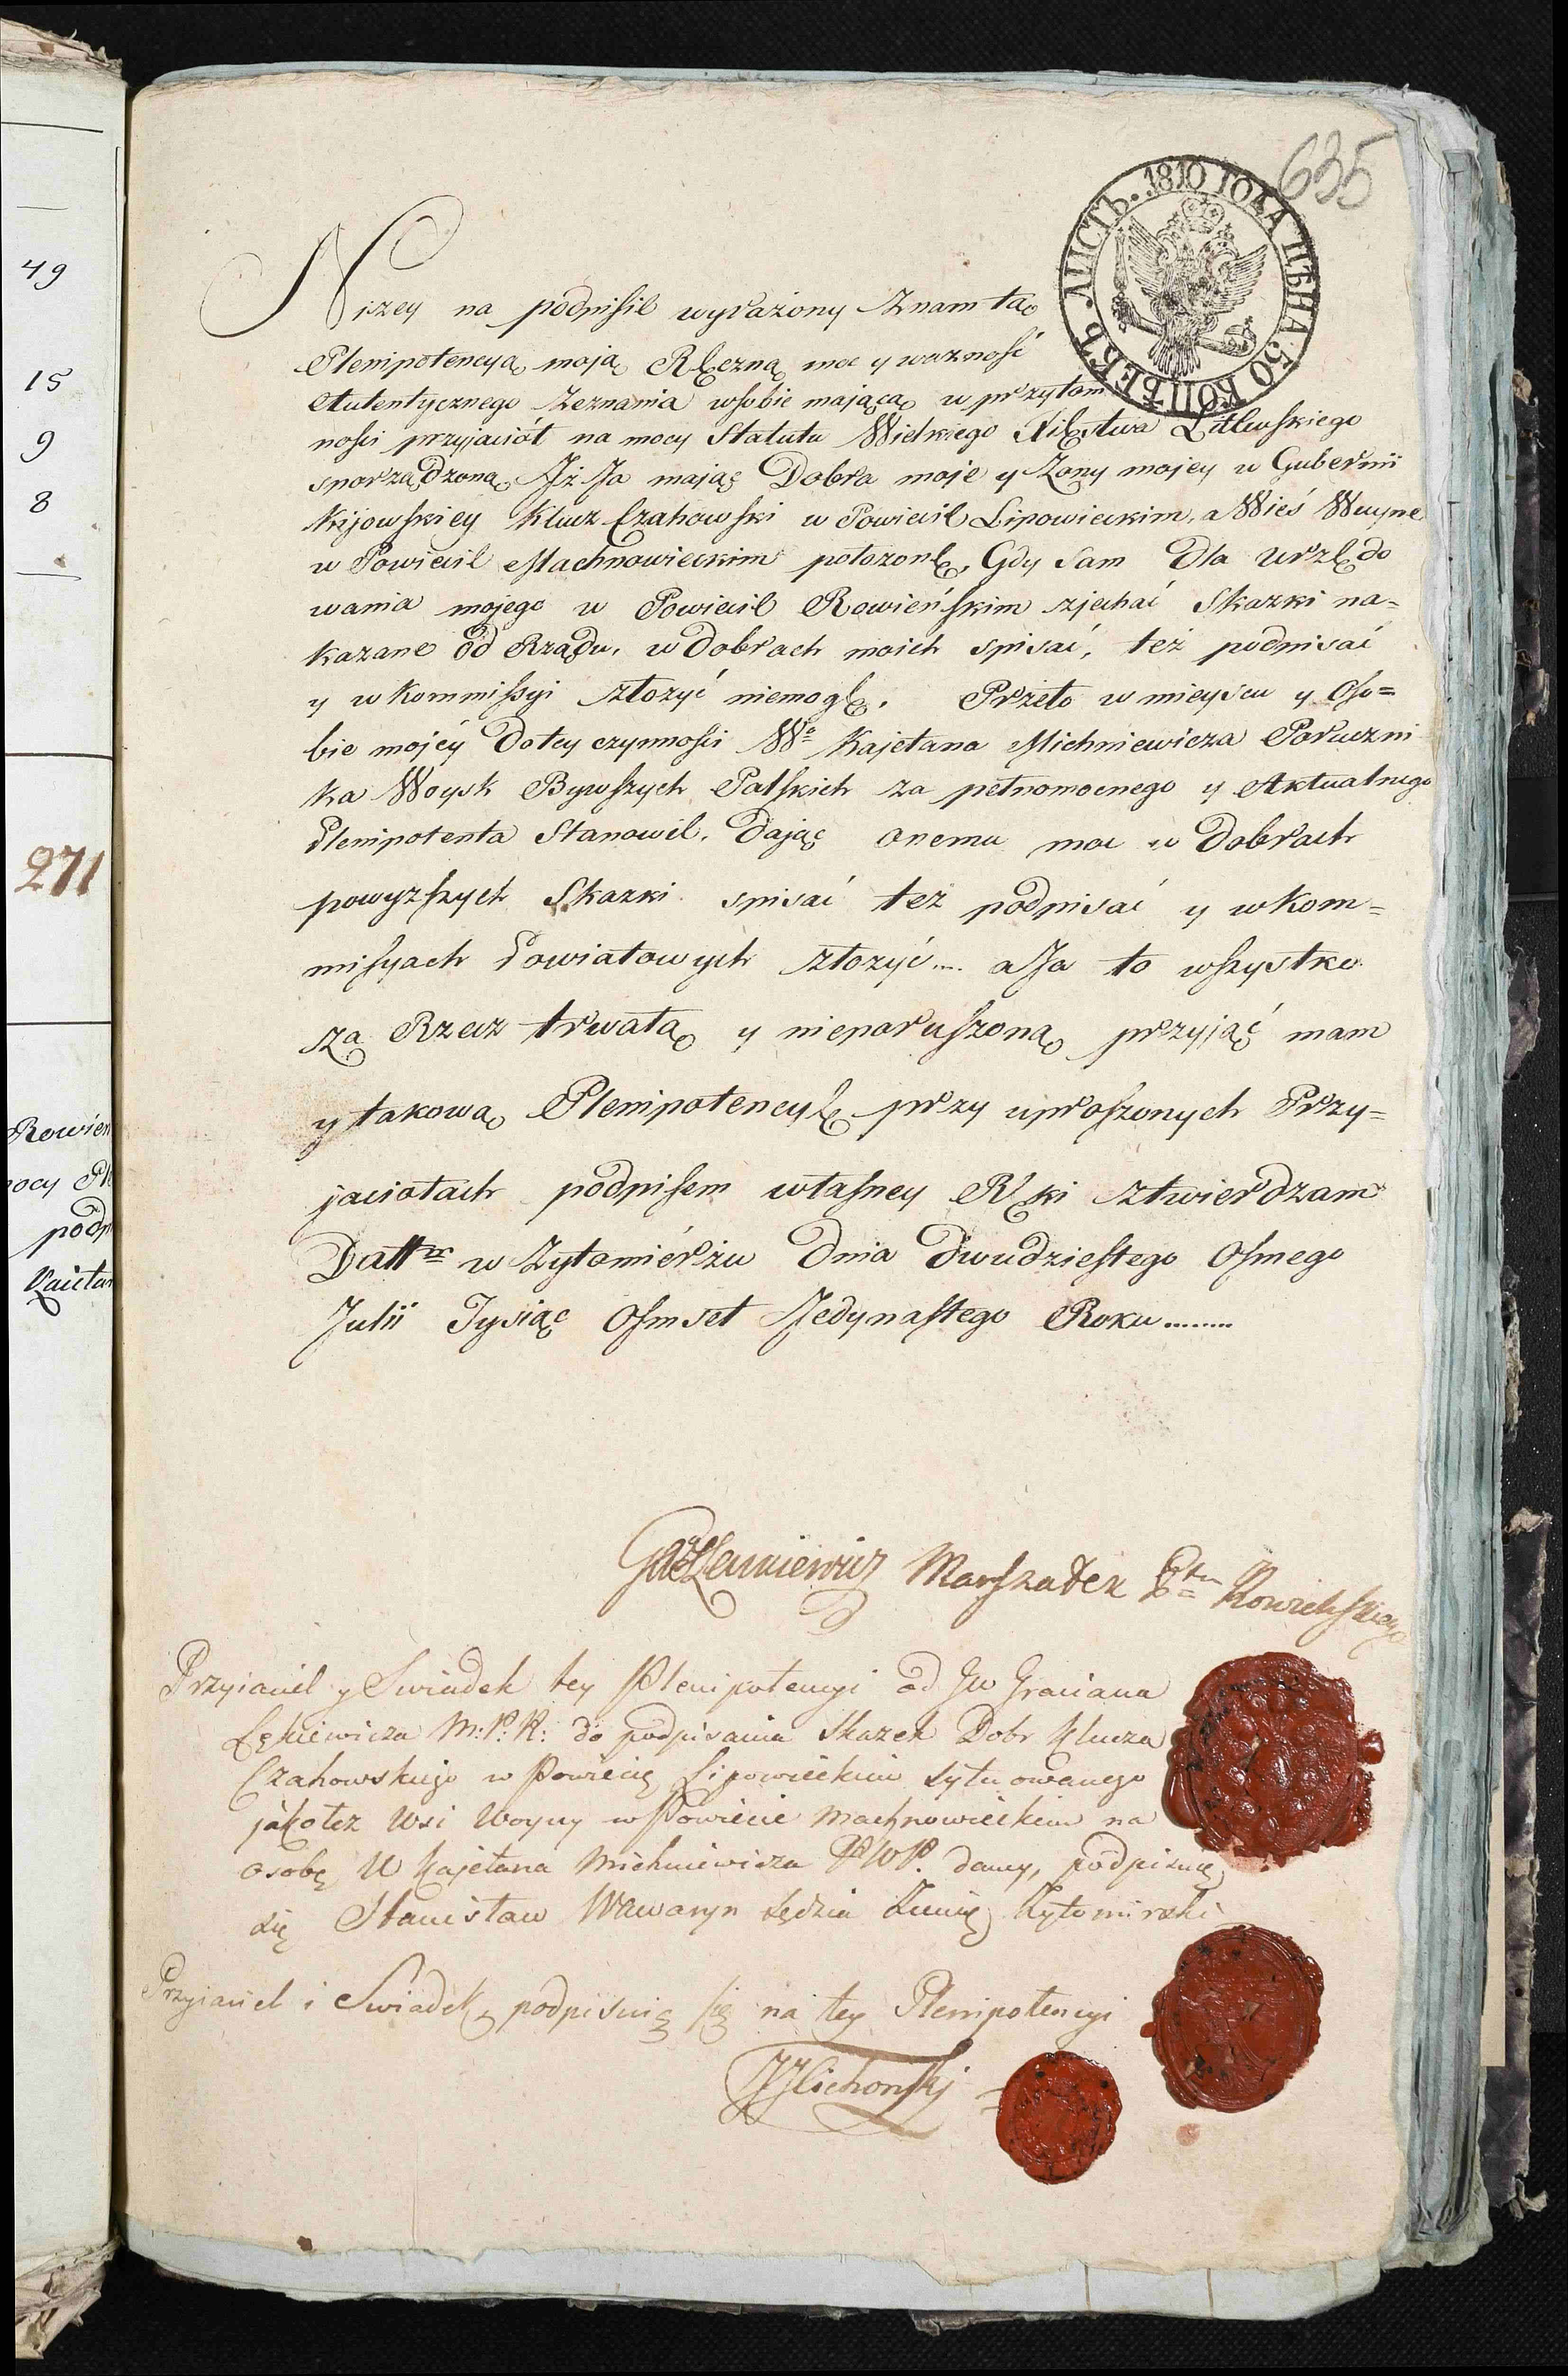 49
15
9
8
271
Rowień
podp
Kaietan
635
ЛИСТЪ. 1810 ГОДА ЦѢНА 50 КОПѢЕКЪ.
Niżey na podpisie wyrażony Znam tą
Plenipotencyą moją Ręczną moc y ważność
Autentycznego Zeznania wsobie mającą w przytom
ności przyjaciół na mocy Statutu Wielkiego Xięstwa Litewskiego
sporządzoną, Jż Ja mając Dobra moje y Zony mojey w Gubernii
Kijowskiey Klucz Czahowski w Powiecie Lipowieckim, a Wieś Wuyne
w Powiecie Machnowieckim położonę, Gdy sam Dla Urzędo
wania mojego w Powiecie Rowieńskim zjechać Skazki na=
kazane od Rządu, w Dobrach moich spisać, też podpisać
y w Kommissyi złożyć niemogę. Przeto w mieyscu y Oso=
bie mojéy Do tey czynności We Kajetana Michniewicza Poruczni
ka Woysk Bywszych Polskich za pełnomocnego y Aktualnego
Plenipotenta Stanowie, Dając onemu moc w Dobrach
powyższych Skazki spisać też podpisać y w Kom=
missyach Powiatowych złożyć.... a Ja to wszystko
za Rzecz trwałą y nieporuszoną przyjąć mam
y takową Plenipotencyę przy uproszonych Przy=
jaciołach podpisem własney Ręki ztwierdzam
Dattm w Zytomiérżu Dnia Dwudziestego Osmego
Julii Tysiąc Osmset Jedynastego Roku........
Marszałek Ptu Rowieńskiego
Przyiaciel y Swiadek tey Plenipotencyi od JW Graciana
Łękiewicza M: P: R: do podpisania Skazek Dobr Klucza
Czahowskiego w Powiecie Lipowieckim sytuowanego
jakoteż Wsi Woyny w Powiecie Machnowieckim na
osobę W Kajetana Michniewicza PWP. daney, podpisuię
się Stanisław Wawaryn Sędzia Ziemię Zytomirski
Przyiaciel i Swiadek podpisuię się na tey Plenipotencyi